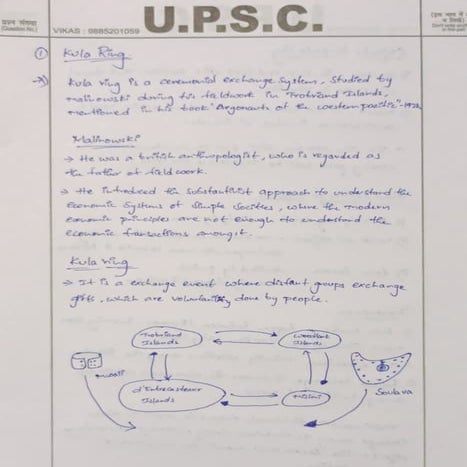 प्रश्न संख्या
(Question No.)
VIKAS : 9885201059
U.P.S.C.
1
Kula Ring
Kula ring is a ceremonial exchange system, studied by
Malinowski during his fieldwork in Trobriand Islands,
mentioned in his book "Argonauts of the western pacific"-1922.
Malinowski
→ He was a british anthropologist, who is regarded as
the father of field work.
→ He introduced the substantivist approach to understand the
economic systems of simple societies, where the modern
economic principles are not enough to understand the
economic transactions amongst.
Kula ring
→ It is a exchange event where distant groups exchange
gifts, which are voluntarily done by people.
Trobriand
Islands
Woodlark
Islands
Mwali
d'Entrecasteaux
Islands
Misini
Soulava